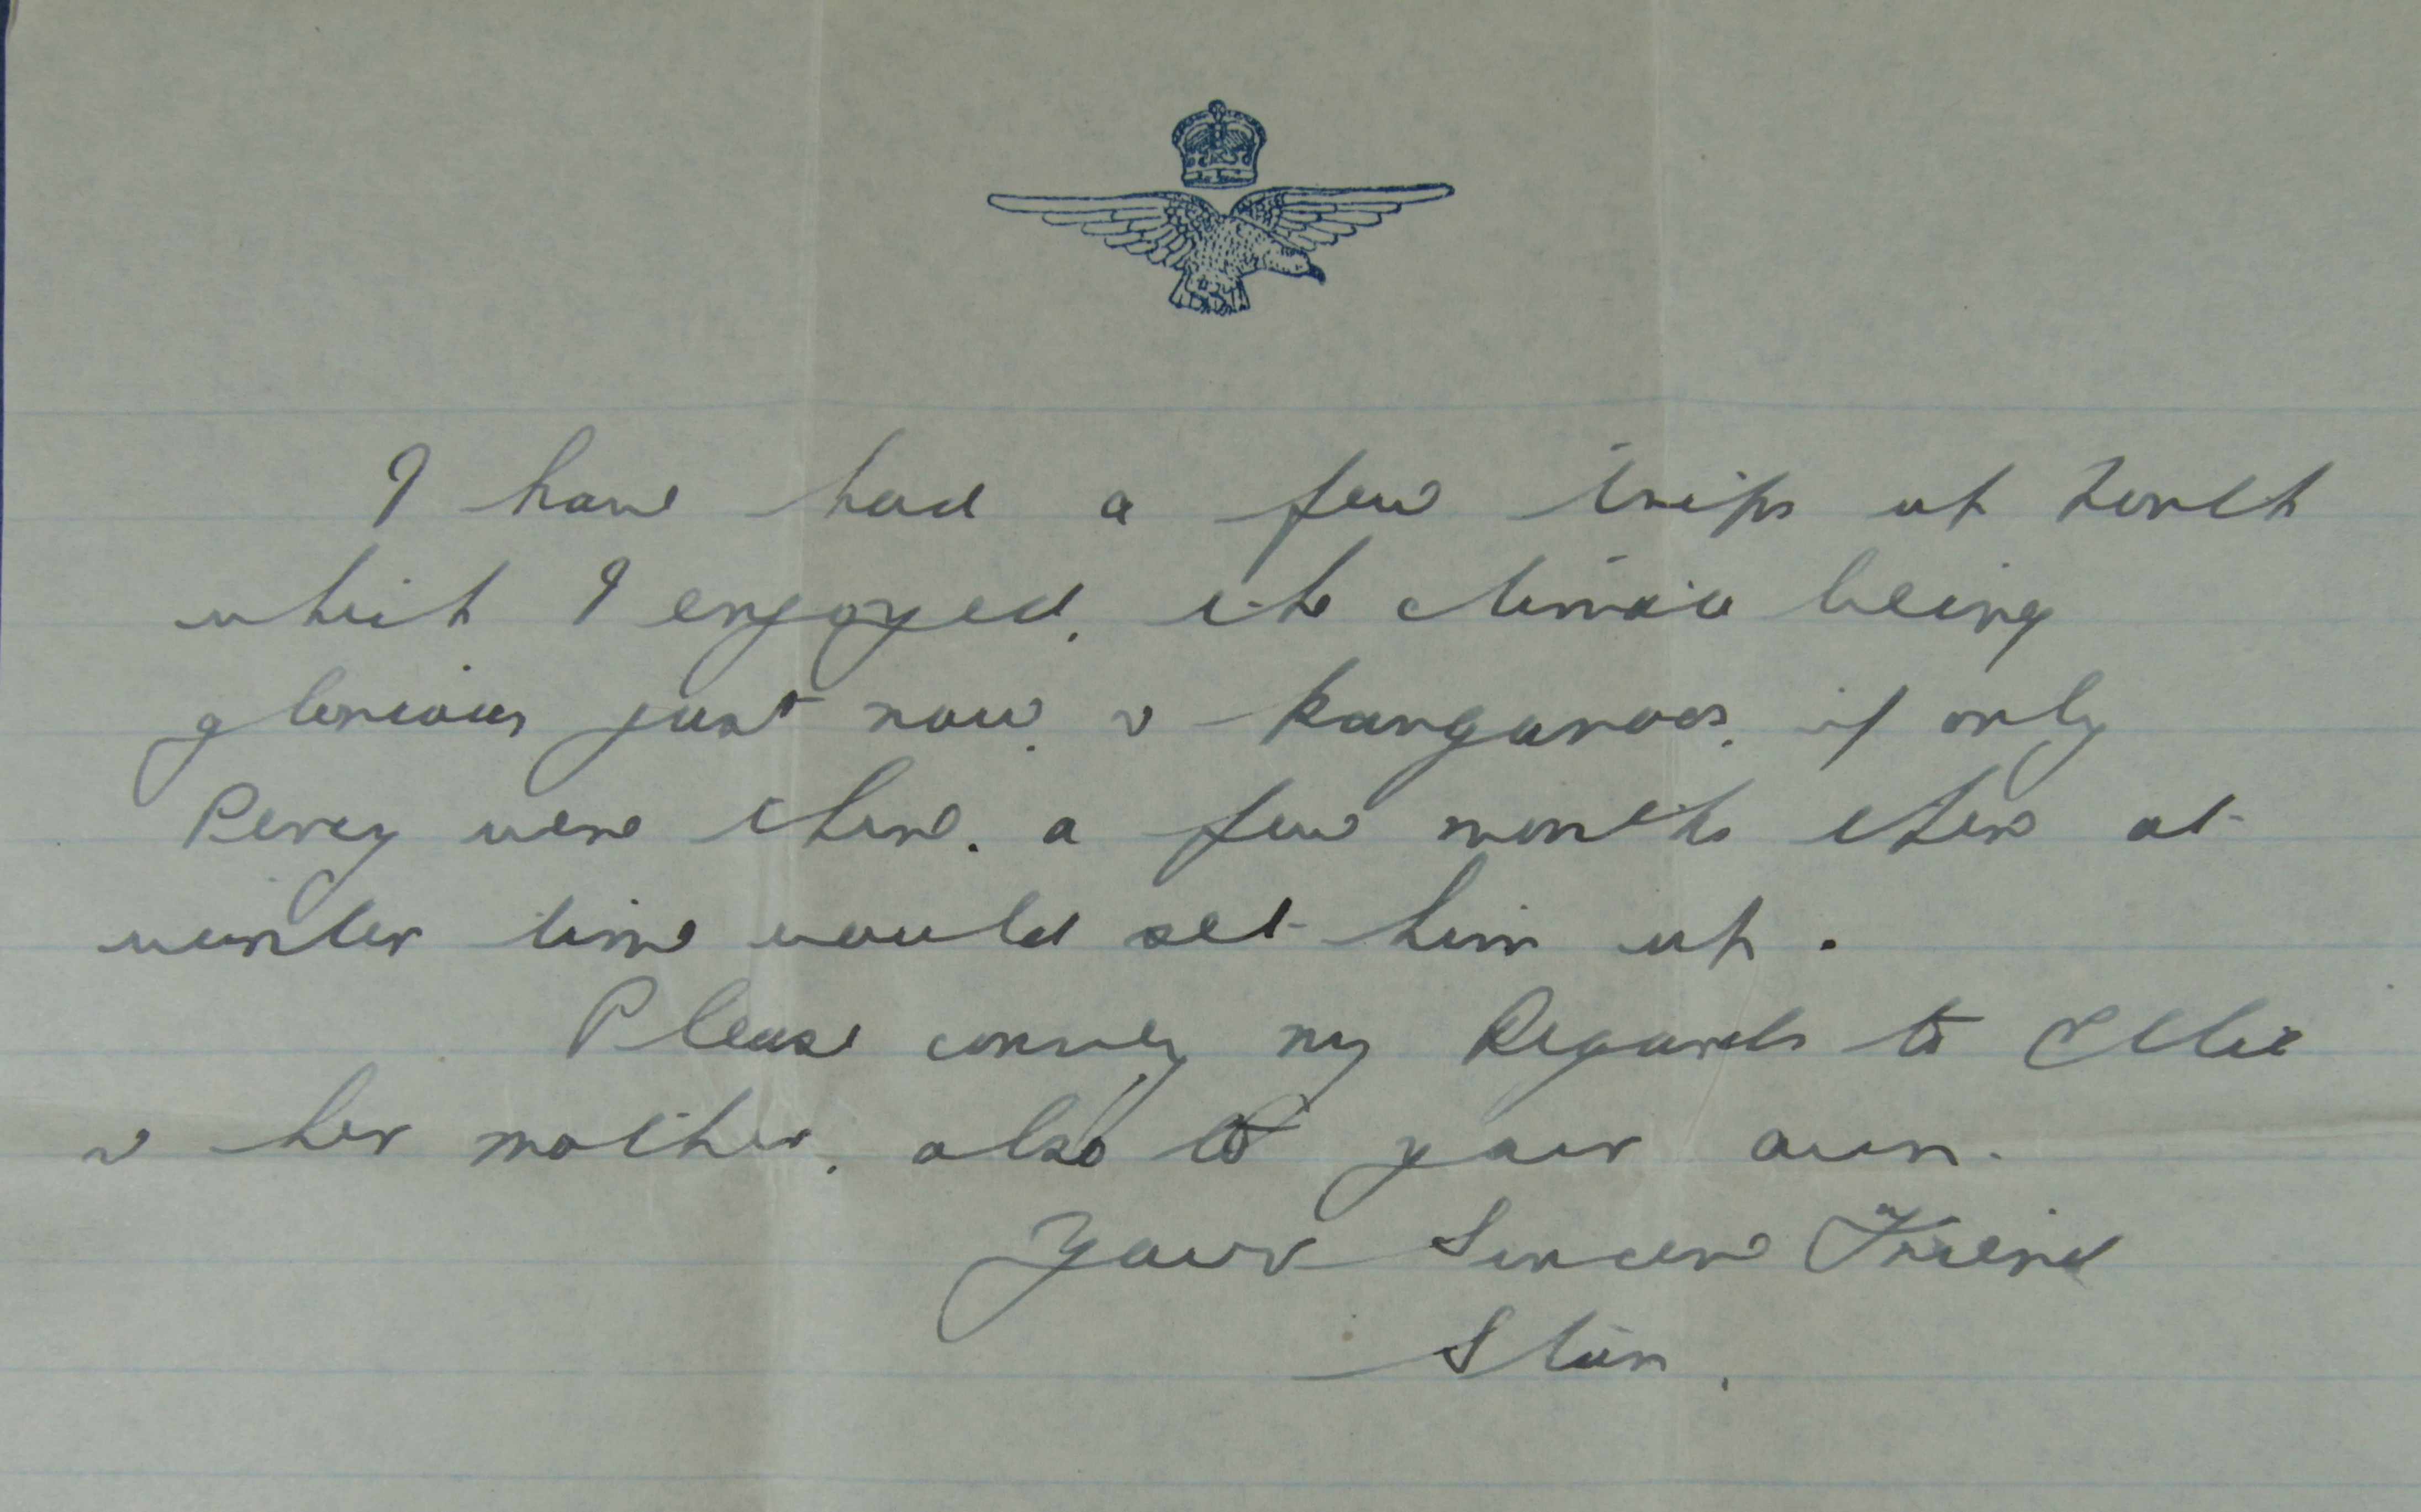 I have had a few trips up North
which I enjoyed, the climate being
glorious just now, & kangaroos, if only
Percy were there. a few months there at
winter time would set him up.
Please convey my Regards to Ellie
& her mother, also to your own.
Your Sincere Friend
Stan.